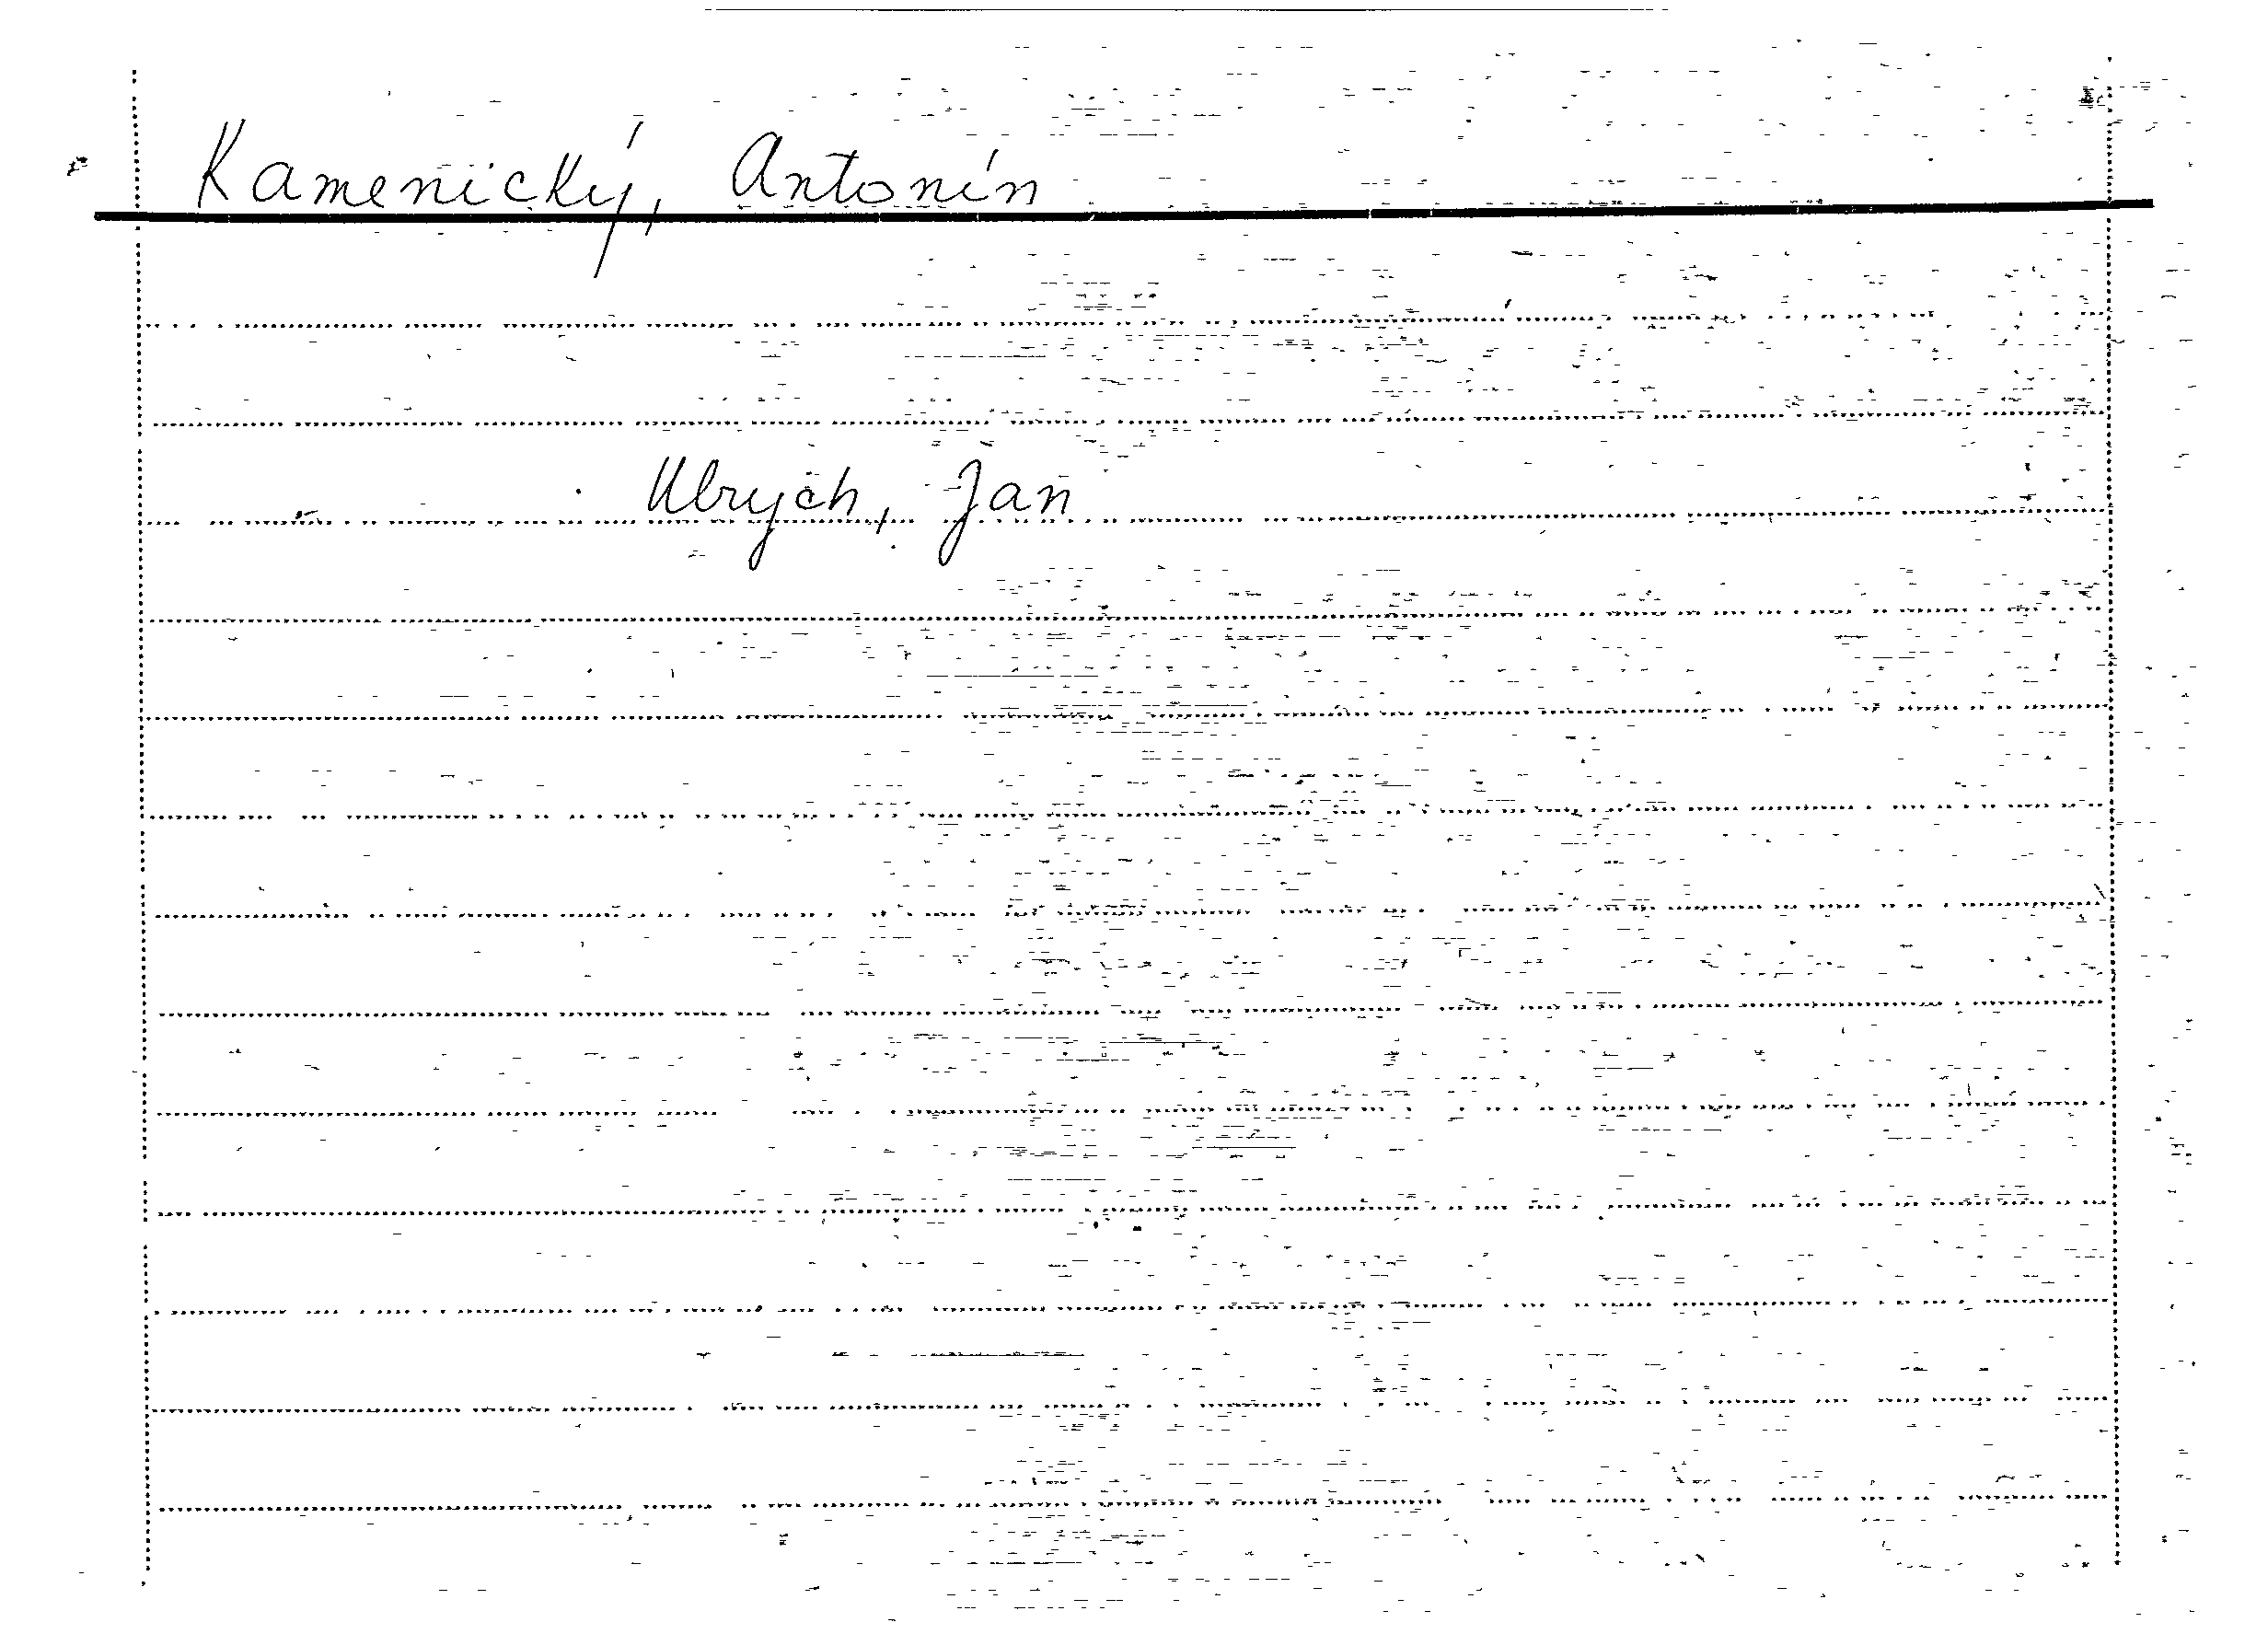 Kamenický, Antonín
Ulrych, Jan